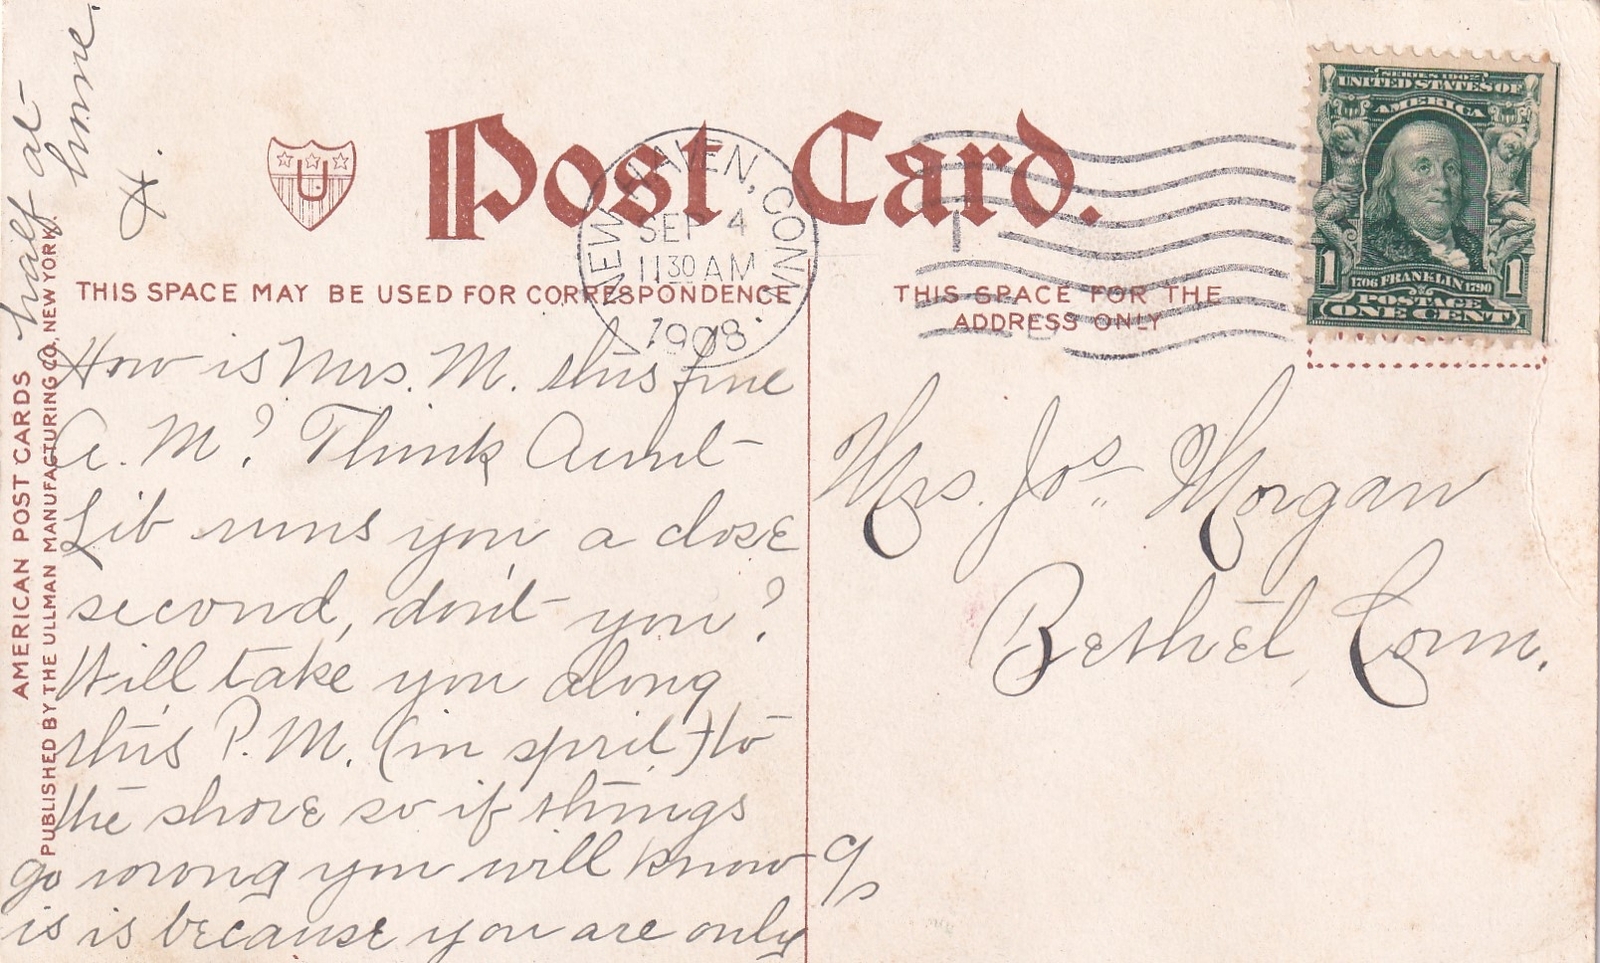 Post Card.
U
NEW HAVEN, CONN.
SEP 4
11 30 AM
1908
SERIES 1902
UNITED STATES OF
AMERICA
1706 FRANKLIN 1790
1 1
POSTAGE
ONE CENT
THIS SPACE MAY BE USED FOR CORRESPONDENCE
THIS SPACE FOR THE
ADDRESS ONLY
AMERICAN POST CARDS
PUBLISHED BY THE ULLMAN MANUFACTURING CO. NEW YORK.
How is Mrs. M. this fine
A. M? Think Aunt
Lib runs you a close
second, don't you?
Will take you along
this P.M. (in spirit) to
the shore so if things
go wrong you will know
is is because you are only
half at
home.
H.
Mrs. Jos. Morgan
Bethel, Conn.